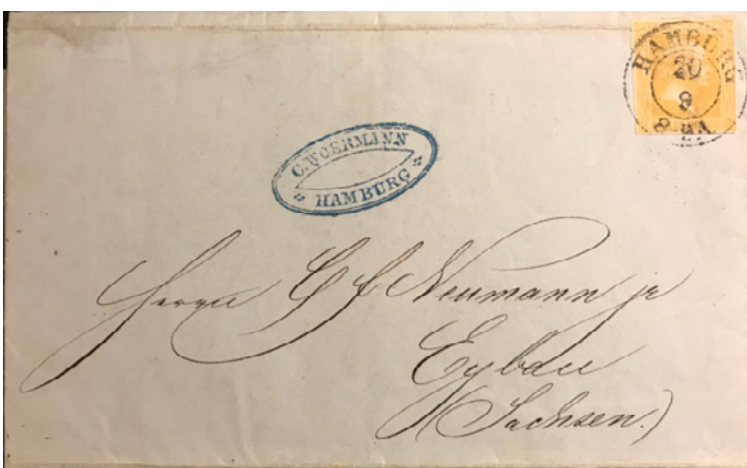 HAMBURG
20
9
C. WOERMANN
HAMBURG
Herrn
Neumann jr
Eybau
(Sachsen.)